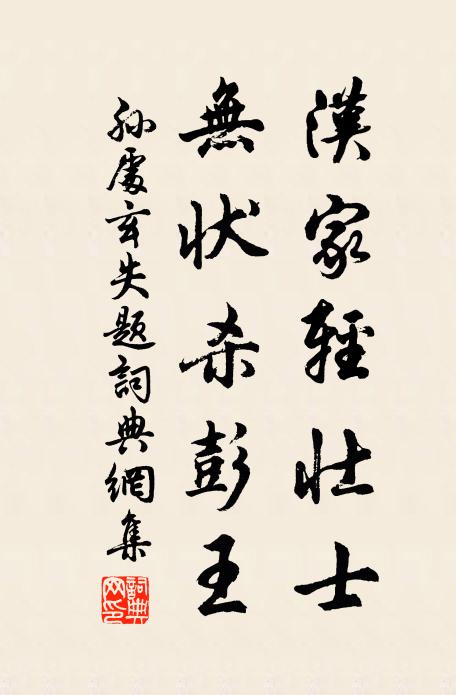 漢家輕壯士
無狀杀彭王
孙處玄失題詞典網集
詞典网印